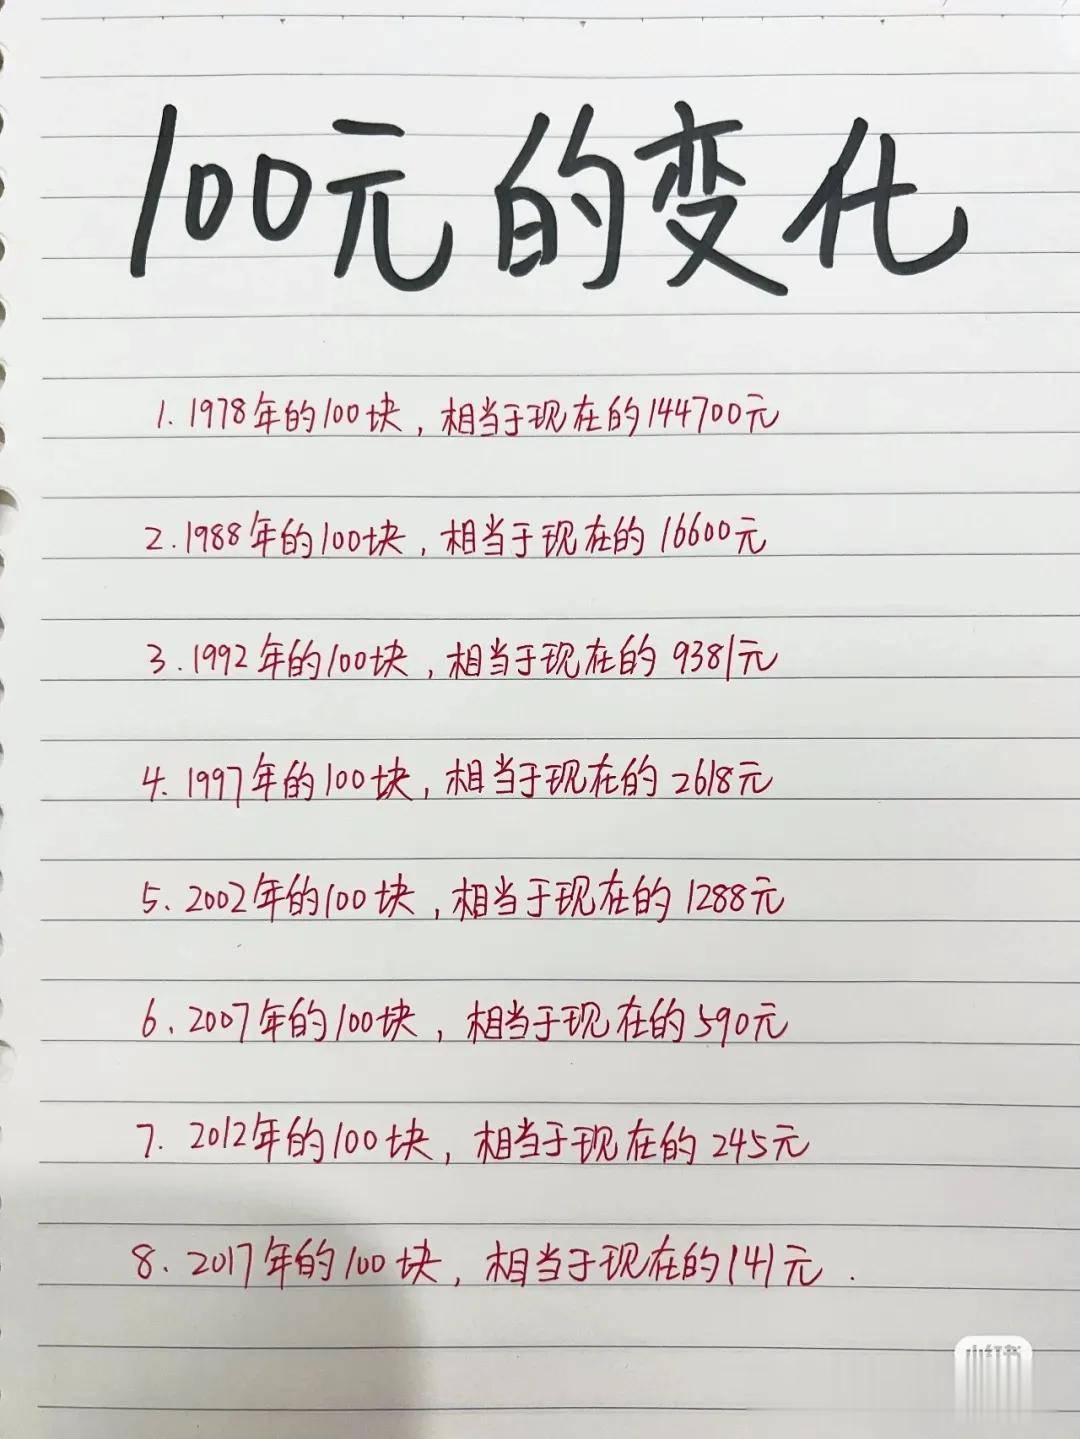 100元的变化
1.1978年的100块，相当于现在的144700元
2.1988年的100块，相当于现在的16600元
3.1992年的100块，相当于现在的9381元
4.1997年的100块，相当于现在的2618元
5、2002年的100块，相当于现在的1288元
6、2007年的100块，相当于现在的590元
7.2012年的100块，相当于现在的245元
8、2017年的100块，相当于现在的141元.
小红书